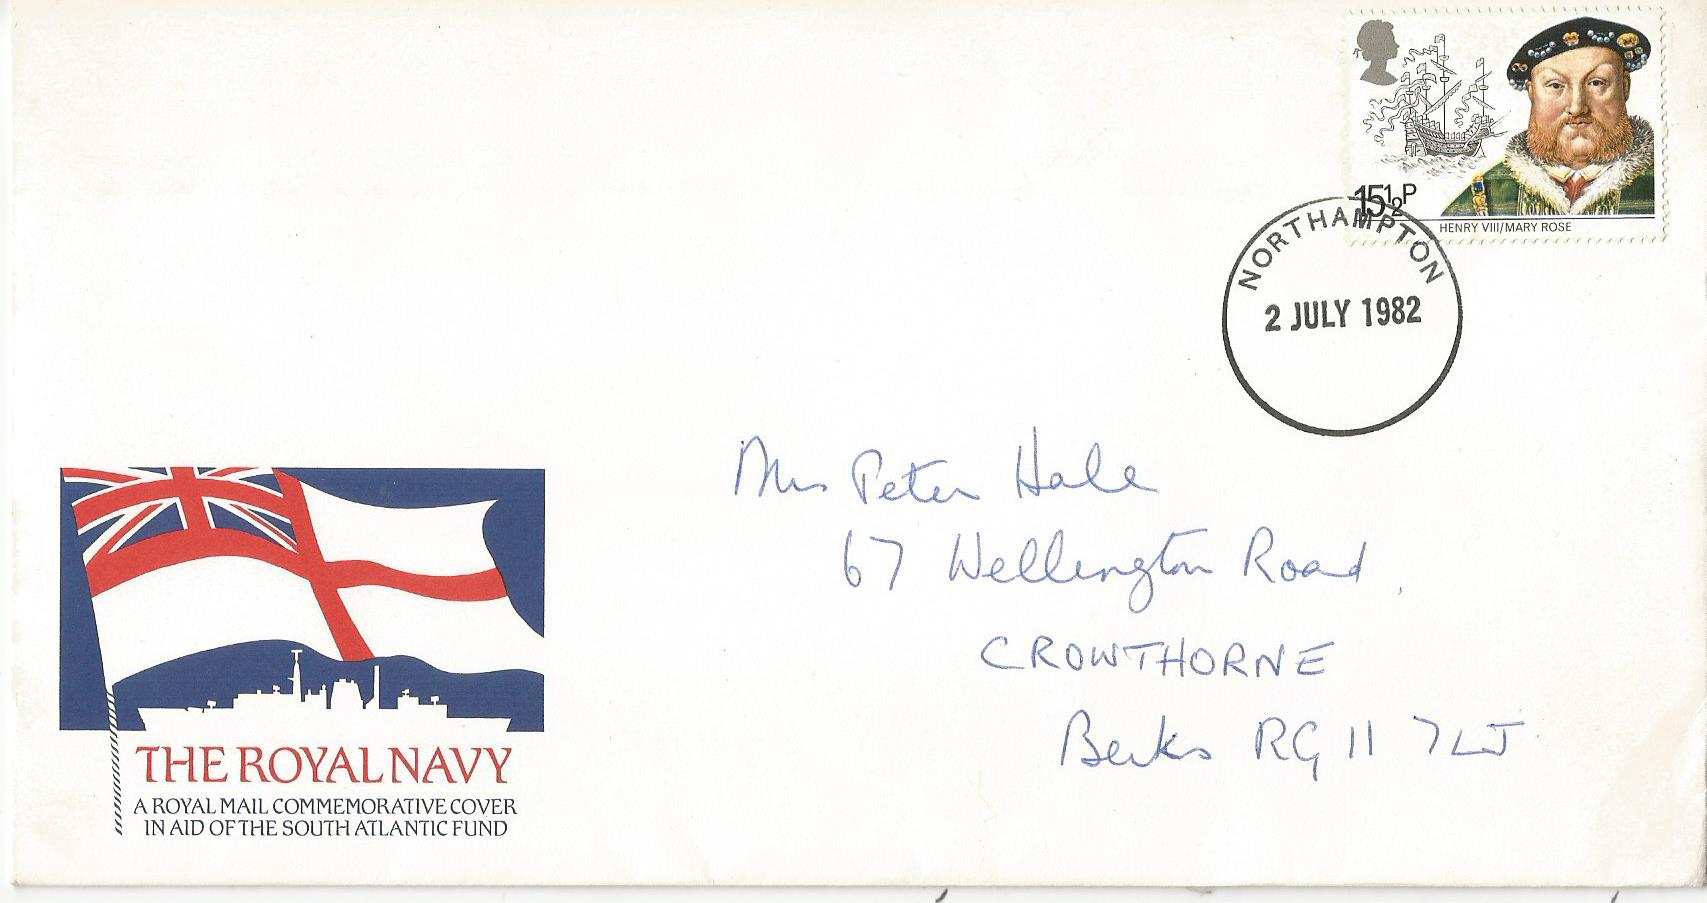 15½P
HENRY VIII/MARY ROSE
NORTHAMPTON
2 JULY 1982
Mrs Peter Hale
67 Wellington Road,
CROWTHORNE
Berks RG11 7LJ
THE ROYAL NAVY
A ROYAL MAIL COMMEMORATIVE COVER
IN AID OF THE SOUTH ATLANTIC FUND